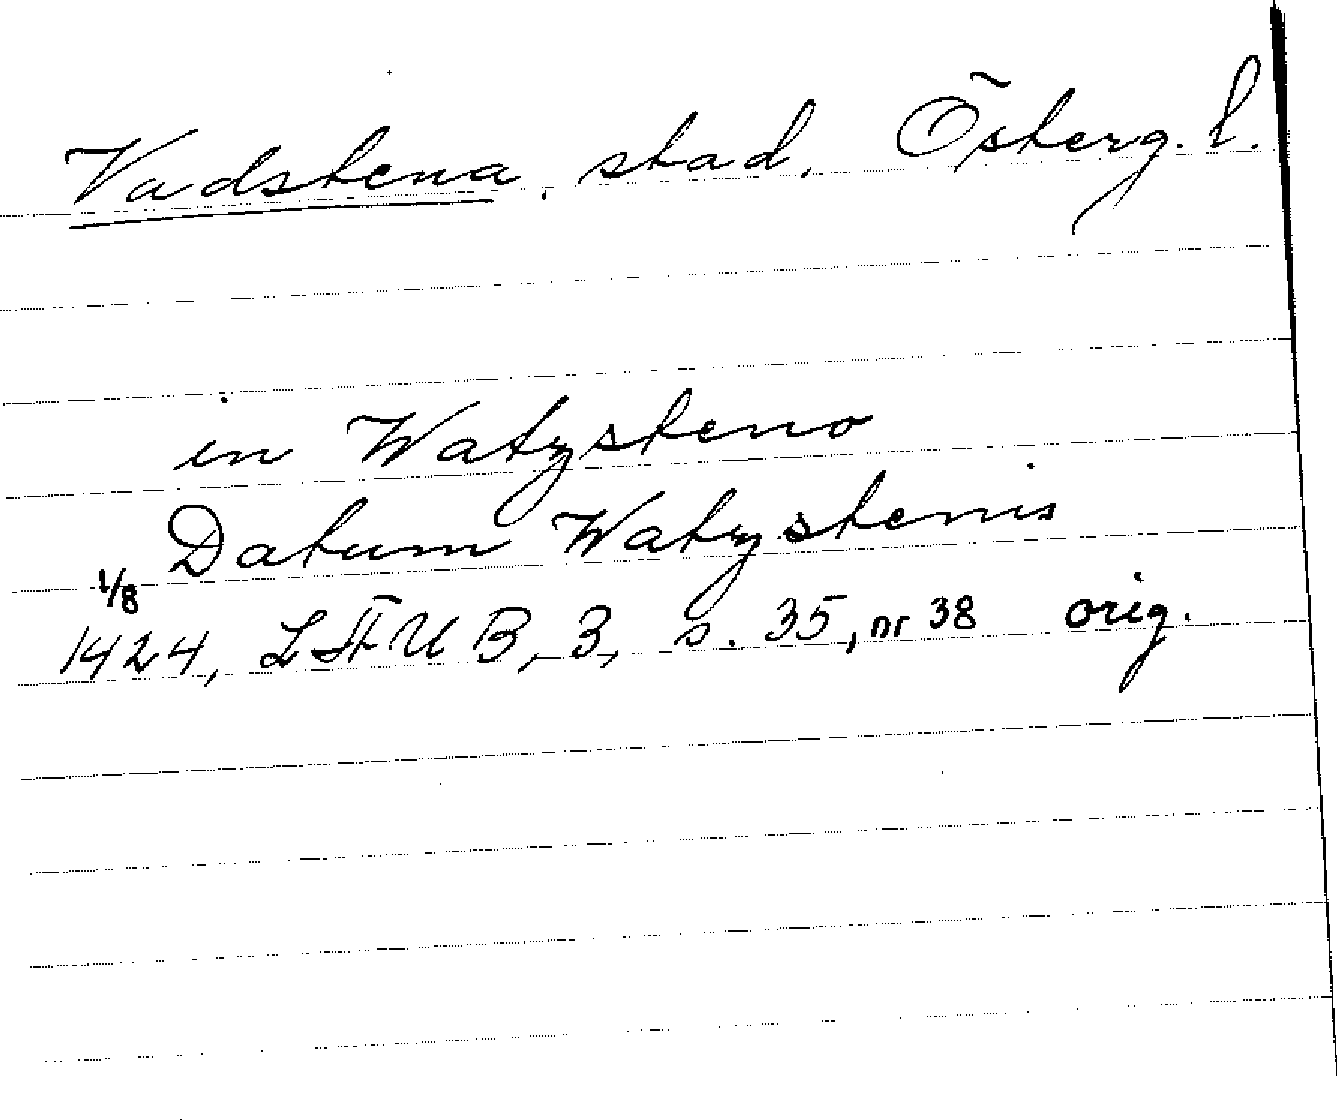 Vadstena, stad, Österg. l.
in Watzsteno
Datum Watzstenis
1/8
1424, LFUB, 3, s. 35, nr 38 orig.